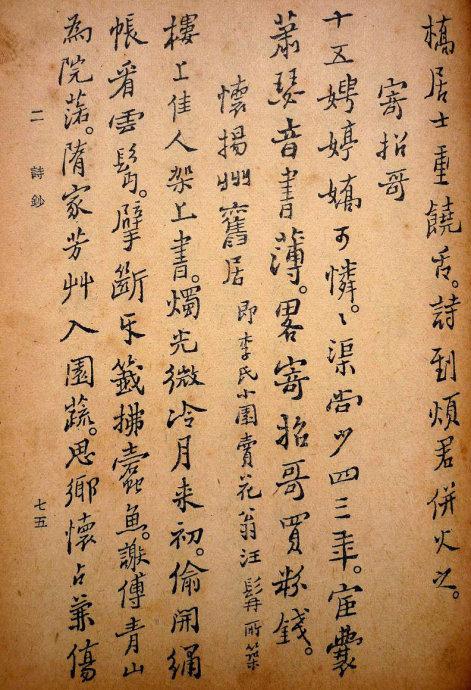 橋居士重饒舌。詩到煩君併火之。
寄招哥
十五娉婷嬌可憐。〻渠尚少四三年。宦囊
蕭瑟音書薄。畧寄招哥買粉錢。
懷揚州舊居 即李氏小園賣花翁汪髯所築
樓上佳人架上書。燭光微冷月來初。偷開繡
帳看雲鬢。擘斷牙籤拂蠹魚。謝傅青山
為院落。隋家芳艸入園蔬。思鄉懷古兼傷
二 詩鈔 七五